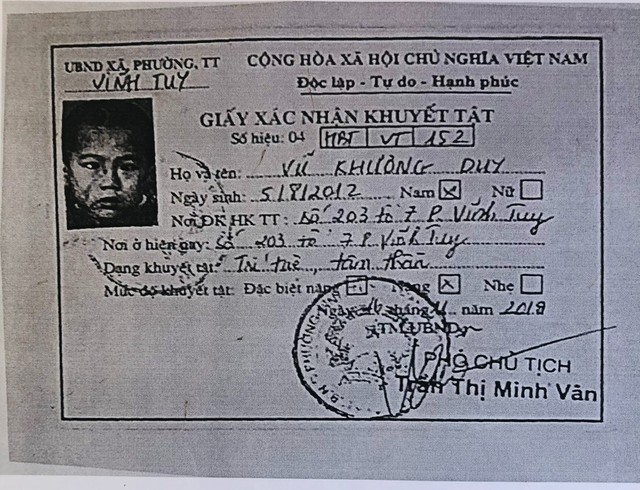 UBND XÃ, PHƯỜNG, TT
VĨNH TUY
CỘNG HÒA XÃ HỘI CHỦ NGHĨA VIỆT NAM
Độc lập - Tự do - Hạnh phúc
GIẤY XÁC NHẬN KHUYẾT TẬT
Số hiệu: 04 HBT VT 152
Họ và tên: VŨ KHƯƠNG DUY
Ngày sinh: 5/8/2012 Nam Nữ
Nơi ĐK HK TT: Số 203 tổ 7 P. Vĩnh Tuy
Nơi ở hiện nay: Số 203 tổ 7 P. Vĩnh Tuy
Dạng khuyết tật: Trí tuệ, tâm thần
Mức độ khuyết tật: Đặc biệt nặng Nặng Nhẹ
Ngày tháng năm 2018
TM.UBND
PHÓ CHỦ TỊCH
Trần Thị Minh Vân